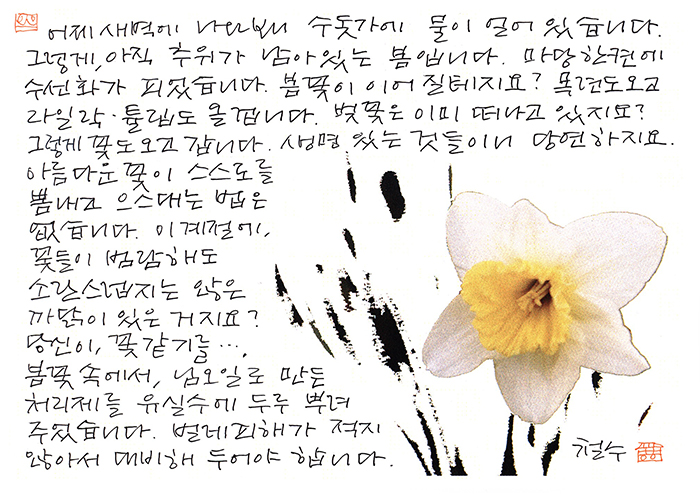 어제 새벽에 나와보니 수돗가에 물이 얼어 있습니다.
그렇게, 아직 추위가 남아있는 봄입니다. 마당 한켠에
수선화가 피었습니다. 봄꽃이 이어질테지요? 목련도 오고
라일락·튤립도 올겁니다. 벚꽃은 이미 떠나고 있지요?
그렇게 꽃도 오고 갑니다. 생명 있는 것들이니 당연하지요.
아름다운 꽃이 스스로를
뽐내고 으스대는 법은
없습니다. 이 계절에,
꽃들이 범람해도
소란스럽지는 않은
까닭이 있은 거지요?
당신이, 꽃같기를….
봄꽃 속에서, 님오일로 만든
처리제를 유실수에 두루 뿌려
주었습니다. 벌레피해가 적지
않아서 대비해 두어야 합니다.
철수